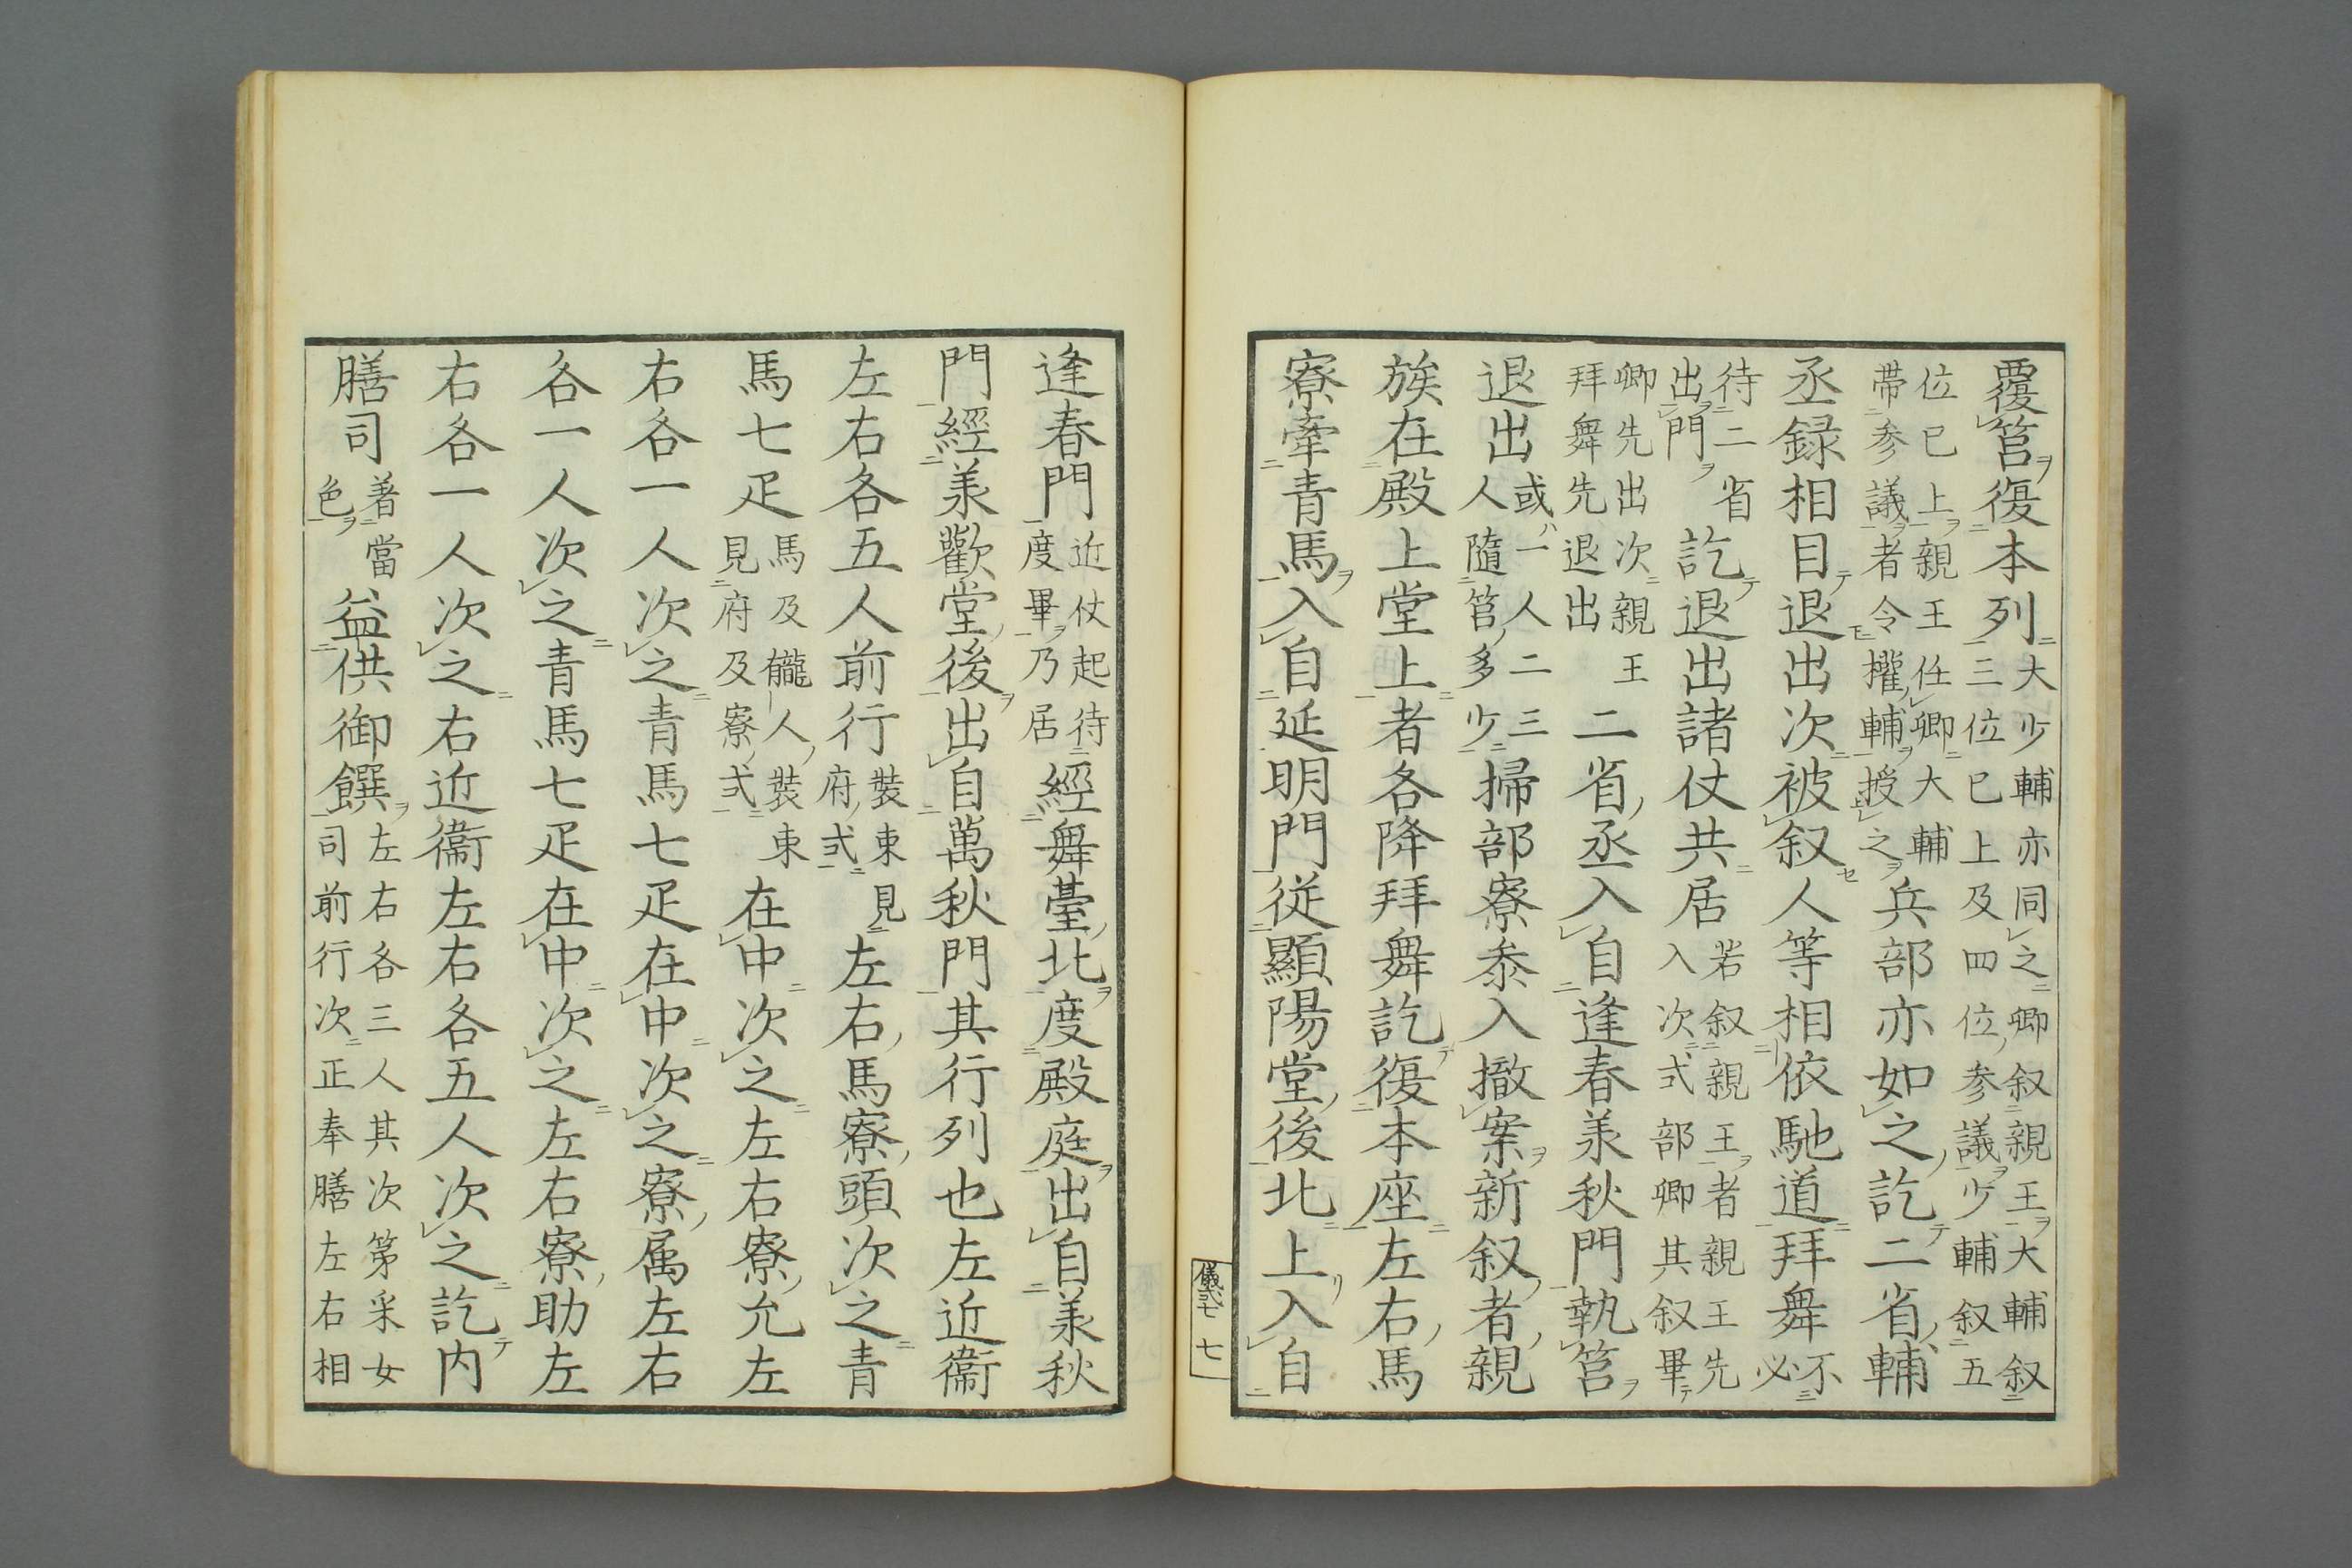 覆筥復本列大少輔亦同之卿叙親王大輔叙三位已上及四位参議少輔叙五
位已上親王任卿大輔帯参議者令權輔授之兵部亦如之訖二省輔
丞録相目退出次被叙人等相依馳道拜舞不必
待二省出門訖退出諸仗共居若叙親王者親王先入次式部卿其叙畢
卿先出次親王拜舞先退出二省丞入自逢春羕秋門執筥
退出或一人二三人隨筥多少掃部寮叅入撤案新叙者親
族在殿上堂上者各降拜舞訖復本座左右馬
寮牽青馬入自延明門従顯陽堂後北上入自
儀式七 七
逢春門近仗起待度畢乃居經舞臺北度殿庭出自羕秋
門經羕歡堂後出自萬秋門其行列也左近衞
左右各五人前行裝束見府式左右馬寮頭次之青
馬七疋馬及龓人裝束見府及寮式在中次之左右寮允左
右各一人次之青馬七疋在中次之寮属左右
各一人次之青馬七疋在中次之左右寮助左
右各一人次之右近衞左右各五人次之訖内
膳司著當色益供御饌左右各三人其次第采女司前行次正奉膳左右相